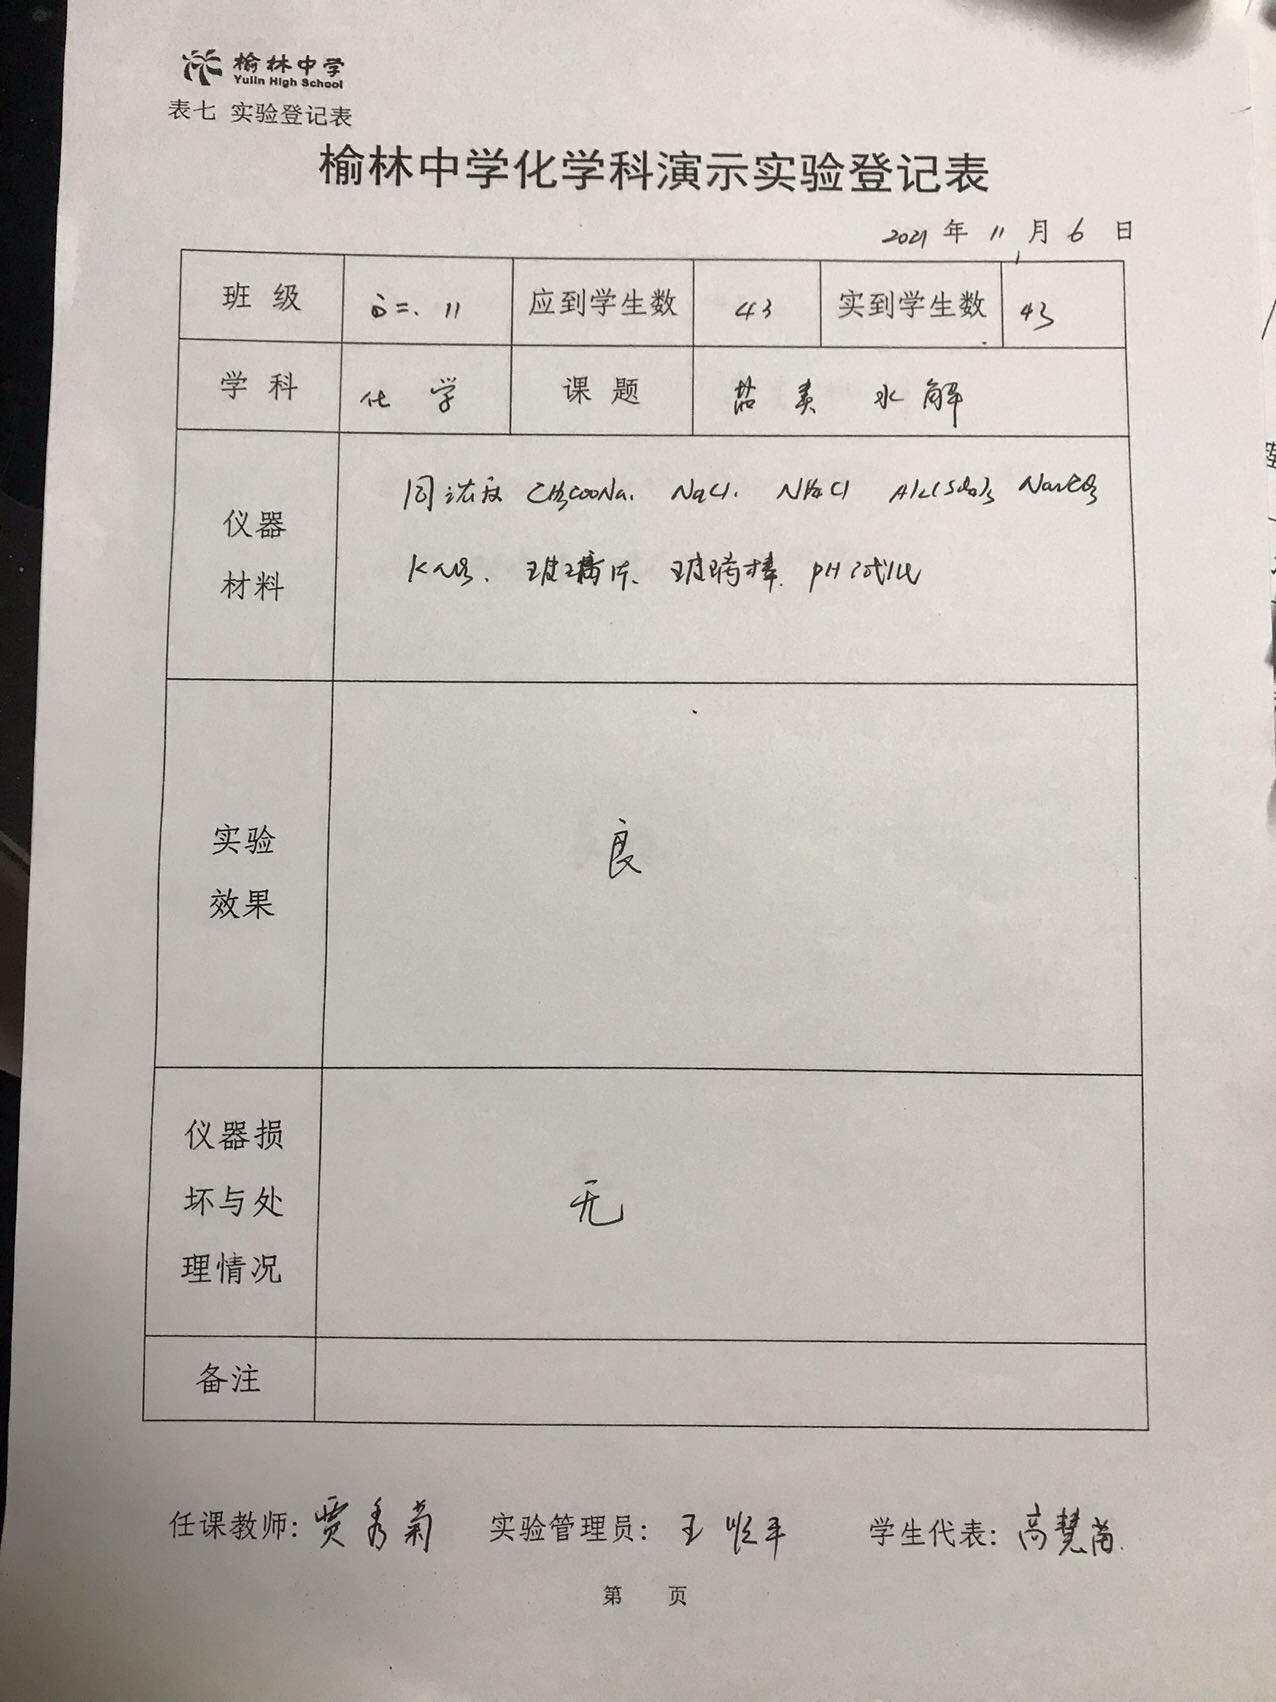 榆林中学
Yulin High School
表七 实验登记表
榆林中学化学科演示实验登记表
2021 年 11 月 6 日
班 级 高二.11 应到学生数 43 实到学生数 43
学 科 化 学 课 题 盐类 水解
仪器
材料
同浓度 CH3COONa、NaCl、NH4Cl Al2(SO4)3 Na2CO3
KNO3、玻璃片、玻璃棒、pH试纸
实验
效果
良
仪器损
坏与处
理情况
无
备注
任课教师: 贾秀菊 实验管理员: 王顺平 学生代表: 高慧
第 页